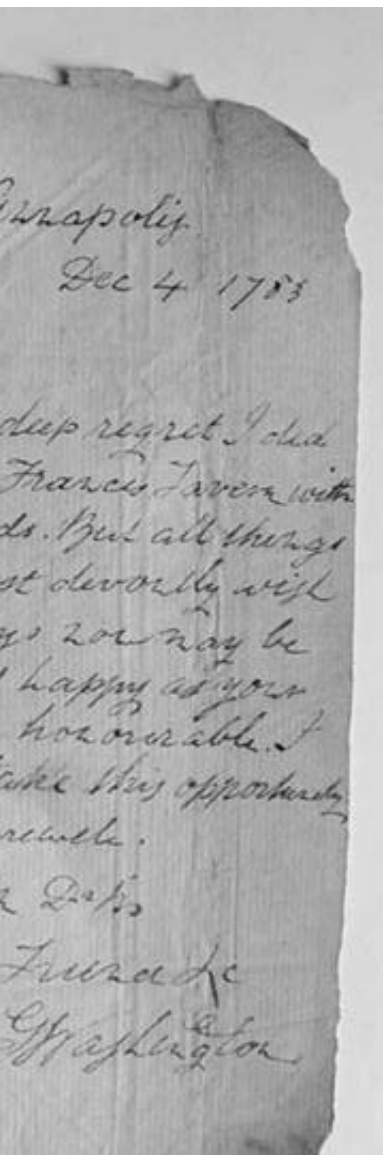 Annapolis
Dec 4 1783
deep regret I did
Frances Tavern with
ds. But all things
st devoutly wish
ys now may be
happy as your
honourable. I
take this opportunity
rewell.
Friend &c
GWashington